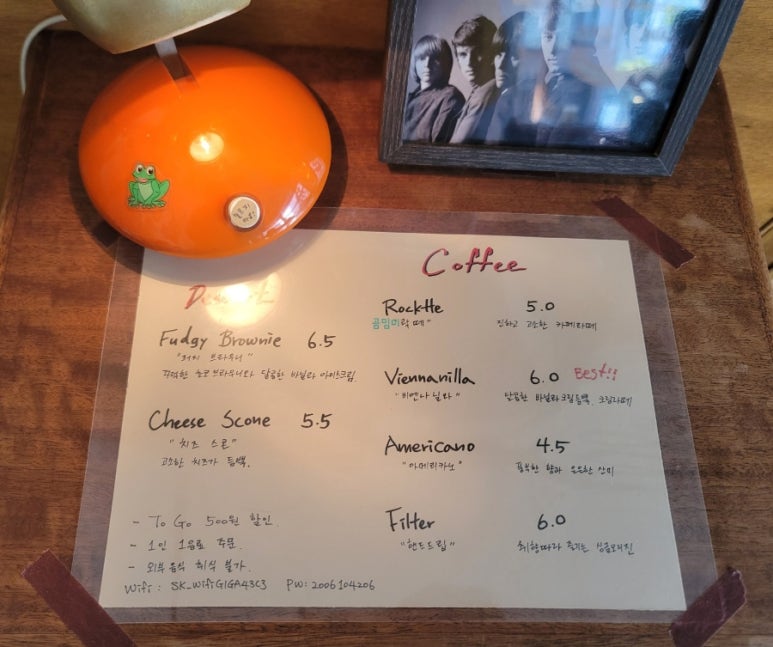 Coffee
Dessert
Fudgy Brownie 6.5
"퍼지 브라우니"
꾸덕한 초코브라우니와 달콤한 바닐라 아이스크림.
Cheese Scone 5.5
"치즈 스콘"
고소한 치즈가 듬뿍.
- To Go 500원 할인.
- 1인 1음료 주문.
- 외부음식 취식 불가.
Wifi : SK_WifiGIGA43C3 PW: 2006104206
Rock-tte 5.0
락떼"
진하고 고소한 카페라떼
Viennanilla 6.0 Best!!
"비엔나닐라"
달콤한 바닐라크림듬뿍. 크림라떼
Americano 4.5
"아메리카노"
풍부한 향과 은은한 산미
Filter 6.0
"핸드드립"
취향따라 즐기는 싱글오리진